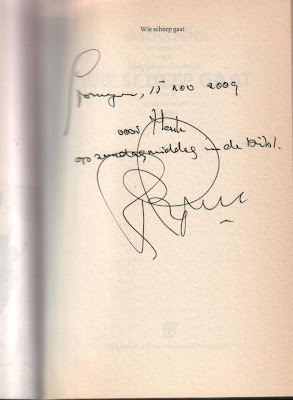 Wie scheep gaat
Groningen, 15 nov 2009
voor Henk
op zondagmiddag in de bibl.